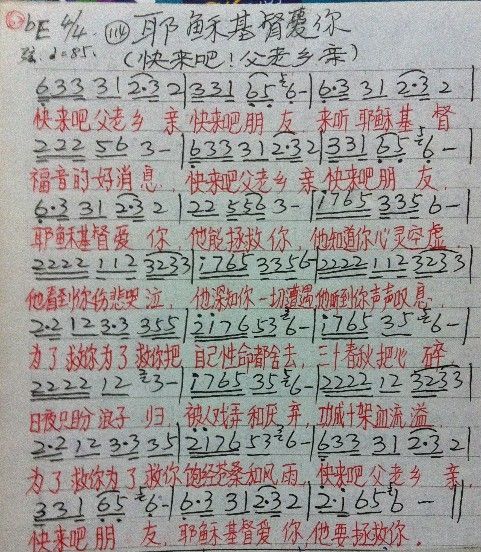 bE 4/4 (114) 耶稣基督爱你
♩=85. (快来吧!父老乡亲)
633 31 2·32 | 331 65 6- | 6·3 31 2·32 |
快来吧父老乡亲 快来吧朋友, 来听耶稣基督
222 56 3- | 633 31 2·32 | 331 65 6- |
福音的好消息, 快来吧父老乡亲 快来吧朋友,
6·3 31 2·3 2 | 22 556 3- | i765 335 6- |
耶稣基督爱你, 他能拯救你, 他知道你心灵空虚,
2222 112 3233 | i765 3356 | 2222 112 3233 |
他看到你伤悲哭泣, 他深知你一切遭遇 他听到你声声叹息,
2·2 12 3·3 355 | 2i765 53 6- | i765 35 6- |
为了救你为了救你把 自己性命都舍去, 三十春秋把心碎,
2222 12 3- | i765 35 6- | 2222 112 3233 |
日夜只盼浪子归, 被人戏弄和厌弃, 功成十架血流溢,
2·2 12 3·3 35 | 2176 53 6- | 633 31 2·32 |
为了救你为了救你饱经苍桑和风雨, 快来吧父老乡亲,
331 65 6- | 6·3 31 2·32 | 2·1 65 6 - ||
快来吧朋友, 耶稣基督爱你 他要拯救你.